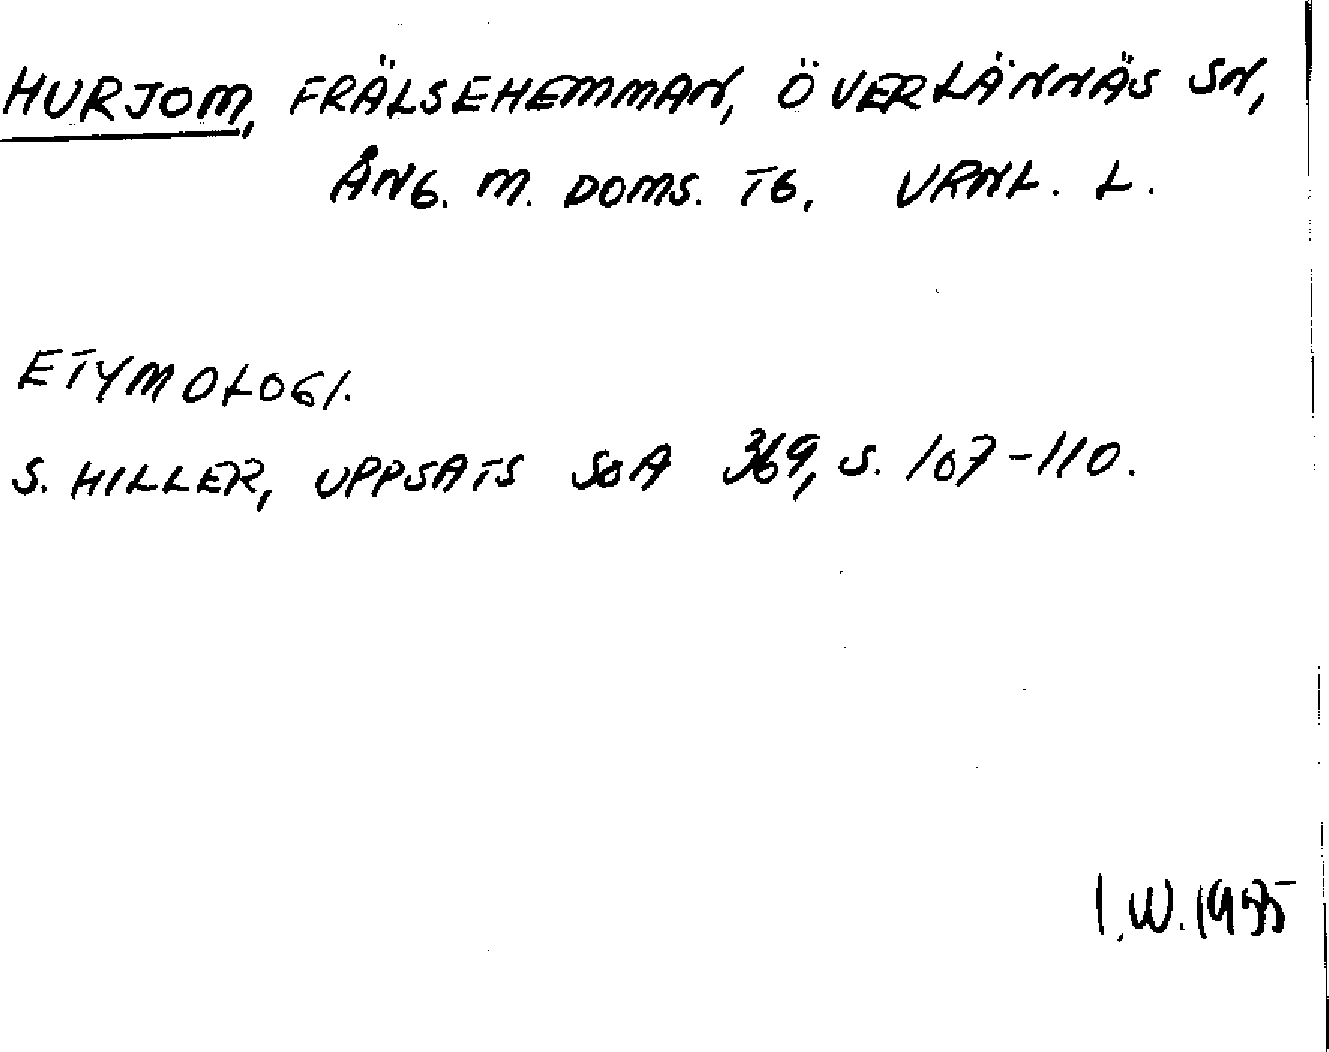 HURJOM, FRÄLSEHEMMAN, ÖVERLÄNNÄS SN,
ÅNG. M. DOMS. TG, VRNL. L.
ETYMOLOGI.
S. HILLER, UPPSATS SOA 369, S. 107-110.
I.W.